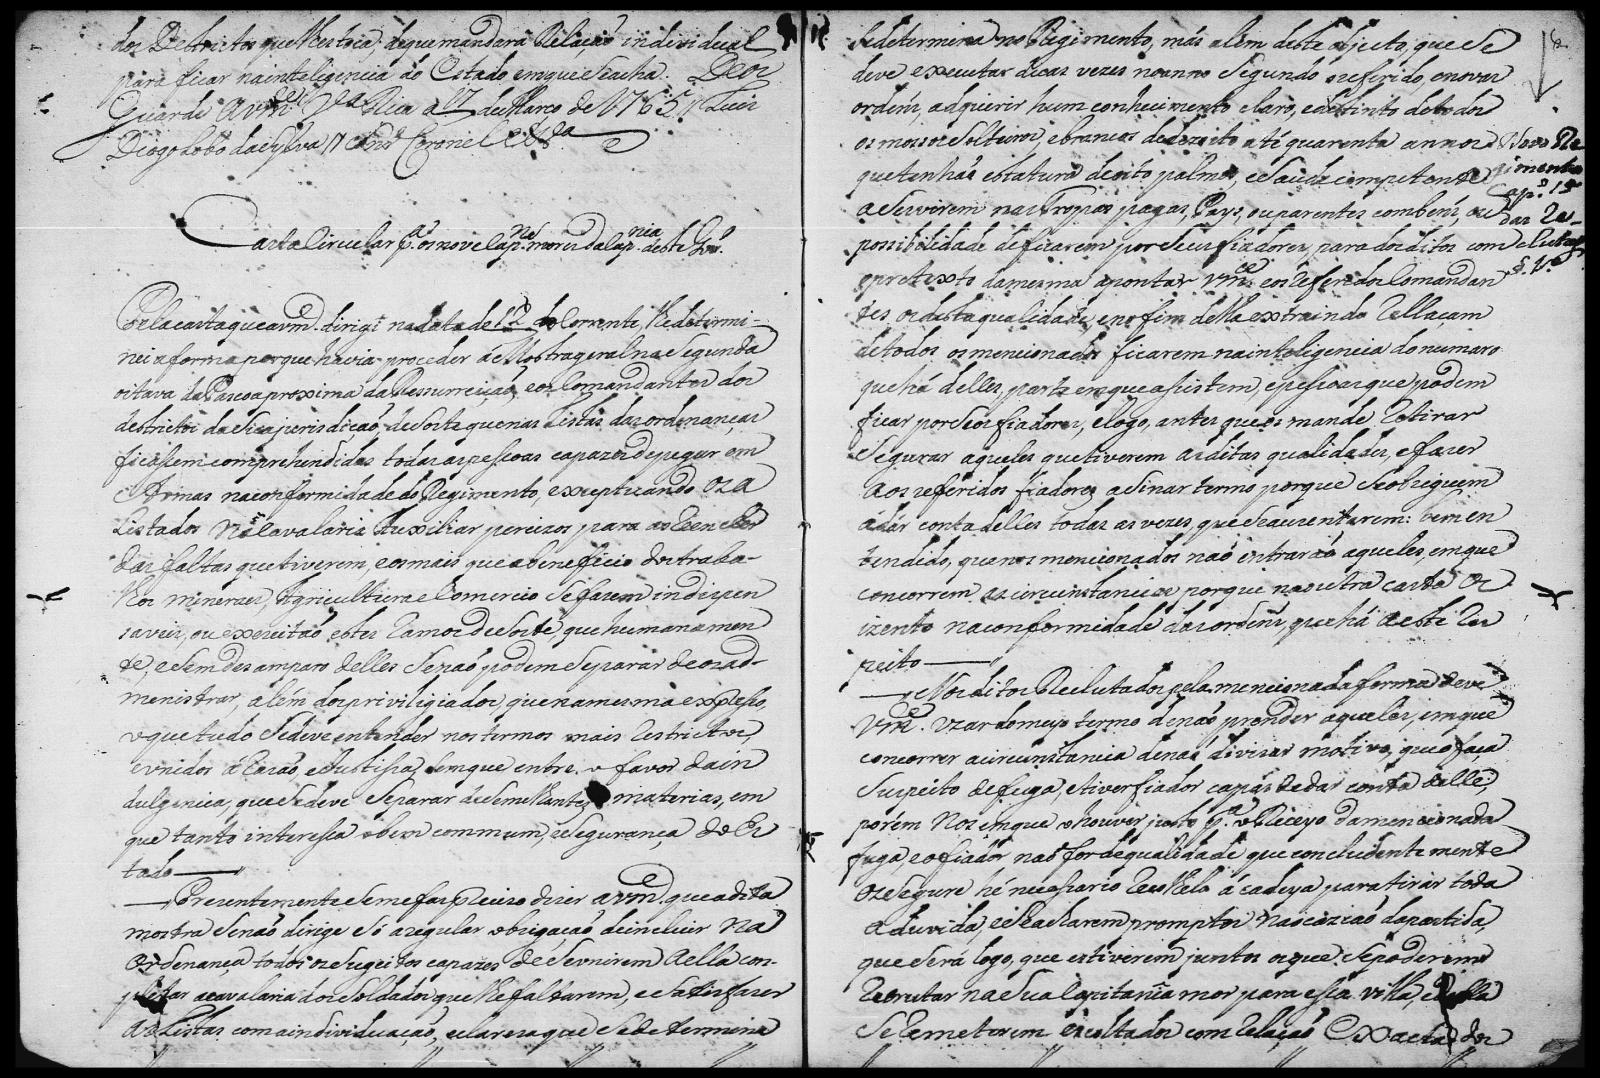 dos Destrictos que lhes toca; de que mandará Relação individual
para ficar na inteligencia do Estado em que se acha. Deos
Guarde a vm.ce V.a Rica a 17 de Março de 1765 // Luis
Diogo Lobo da Sylva // Snr. Coronel &.a
Carta Circular p.a os nove Cap.nes mores da Cap.nia deste Gov.
Pela carta que a vm.ce dirigi na data de 12 do Corrente, lhe determi-
nei a forma porque havia proceder á Mostra geral na segunda
oitava da Pascoa proxima da Ressurreição, e os Comandantes dos
destrictos da sua jurisdição, de sorte que nas Listas das ordenanças
ficassem comprehendidas todas as pessoas capazes de pegar em
Armas na conformidade do Regimento, exceptuando os a
Listados na Cavalaria Auxiliar percizos para as
das faltas que tiverem, e os mais que a beneficio dos traba-
lhos mineraes, Agricultura e Comercio se fazem indispen
saveis, ou exercitão estes ramos de sorte, que humanamen
te, e sem desamparo delles se não podem separar de os ad-
menistrar, além dos priviligiados, que na mesma expresso,
o que tudo se deve entender nos termos mais restrictos,
e unidos á razão, e Justissa, sem que entre o favor da in
dulgencia, que se deve separar de semelhantes materias, em
que tanto interessa o bem commum, e segurança do Es
tado
Prezentemente se me faz precizo dizer a vm.ce que a dita
mostra se não dirige só a regular obrigação de incluir na
Ordenança todos os sugeitos capazes de servirem nella com-
pletar a cavalaria dos soldados que lhe faltarem, e satisfazer
as Listas com a individuação, e clareza que se determina
se determina no Regimento, mas além deste objecto, que se
deve executar duas vezes no anno segundo o referido, e novas
ordens, adquirir hum conhecimento claro, e destinto de todos
os mossos solteiros, e brancos de dezoito a té quarenta annos
que tenhão estatura de oito palmos, e saude competente
a servirem nas Tropas pagas, Pays, ou parentes com bens, ou
possibilidade de ficarem por seus fiadores, para dos ditos com
o pretexto da mesma apontar vm.ce e os referidos Comandan
tes os desta qualidade, e no fim della extraindo Rellaçam
de todos os mencionados ficarem na inteligencia do numaro
que há delles, parte em que assistem, e pessoas que podem
ficar por seos fiadores, e logo, antes que os mande retirar
segurar aqueles que tiverem as ditas qualidades, e fazer
aos referidos fiadores asinar termo porque se obriguem
a dar conta delles todas as vezes, que se auzentarem: bem en
tendido, que nos mencionados não entrarão aqueles, em que
concorrem as circunstancias porque na outra carta os
izento na conformidade das ordens, que há a este res
peito
Nos ditos Reclutados pela mencionada forma deve
vm.ce uzar do meyo termo de não prender aqueles, em que
concorrer a circunstancia de não divizar motivo, que o faça
suspeito de fuga, e tiver fiador capás de dar conta delle;
porém nos em que o houver justo p.a o Receyo da mencionada
fuga, e o fiador não for de qualidade que concludentemente
o segure hé necessario recolhelo á cadeya para tirar toda
a duvida, e se acharem promptos na ocazião da partida,
que será logo, que estiverem juntos os que se poderem
recrutar na sua Capitania mor para essa villa,
se remeterem escoltados com relação Exacta dos
Novo Re
gimento
Cap.o 15
das Re-
clutas
§. V.o